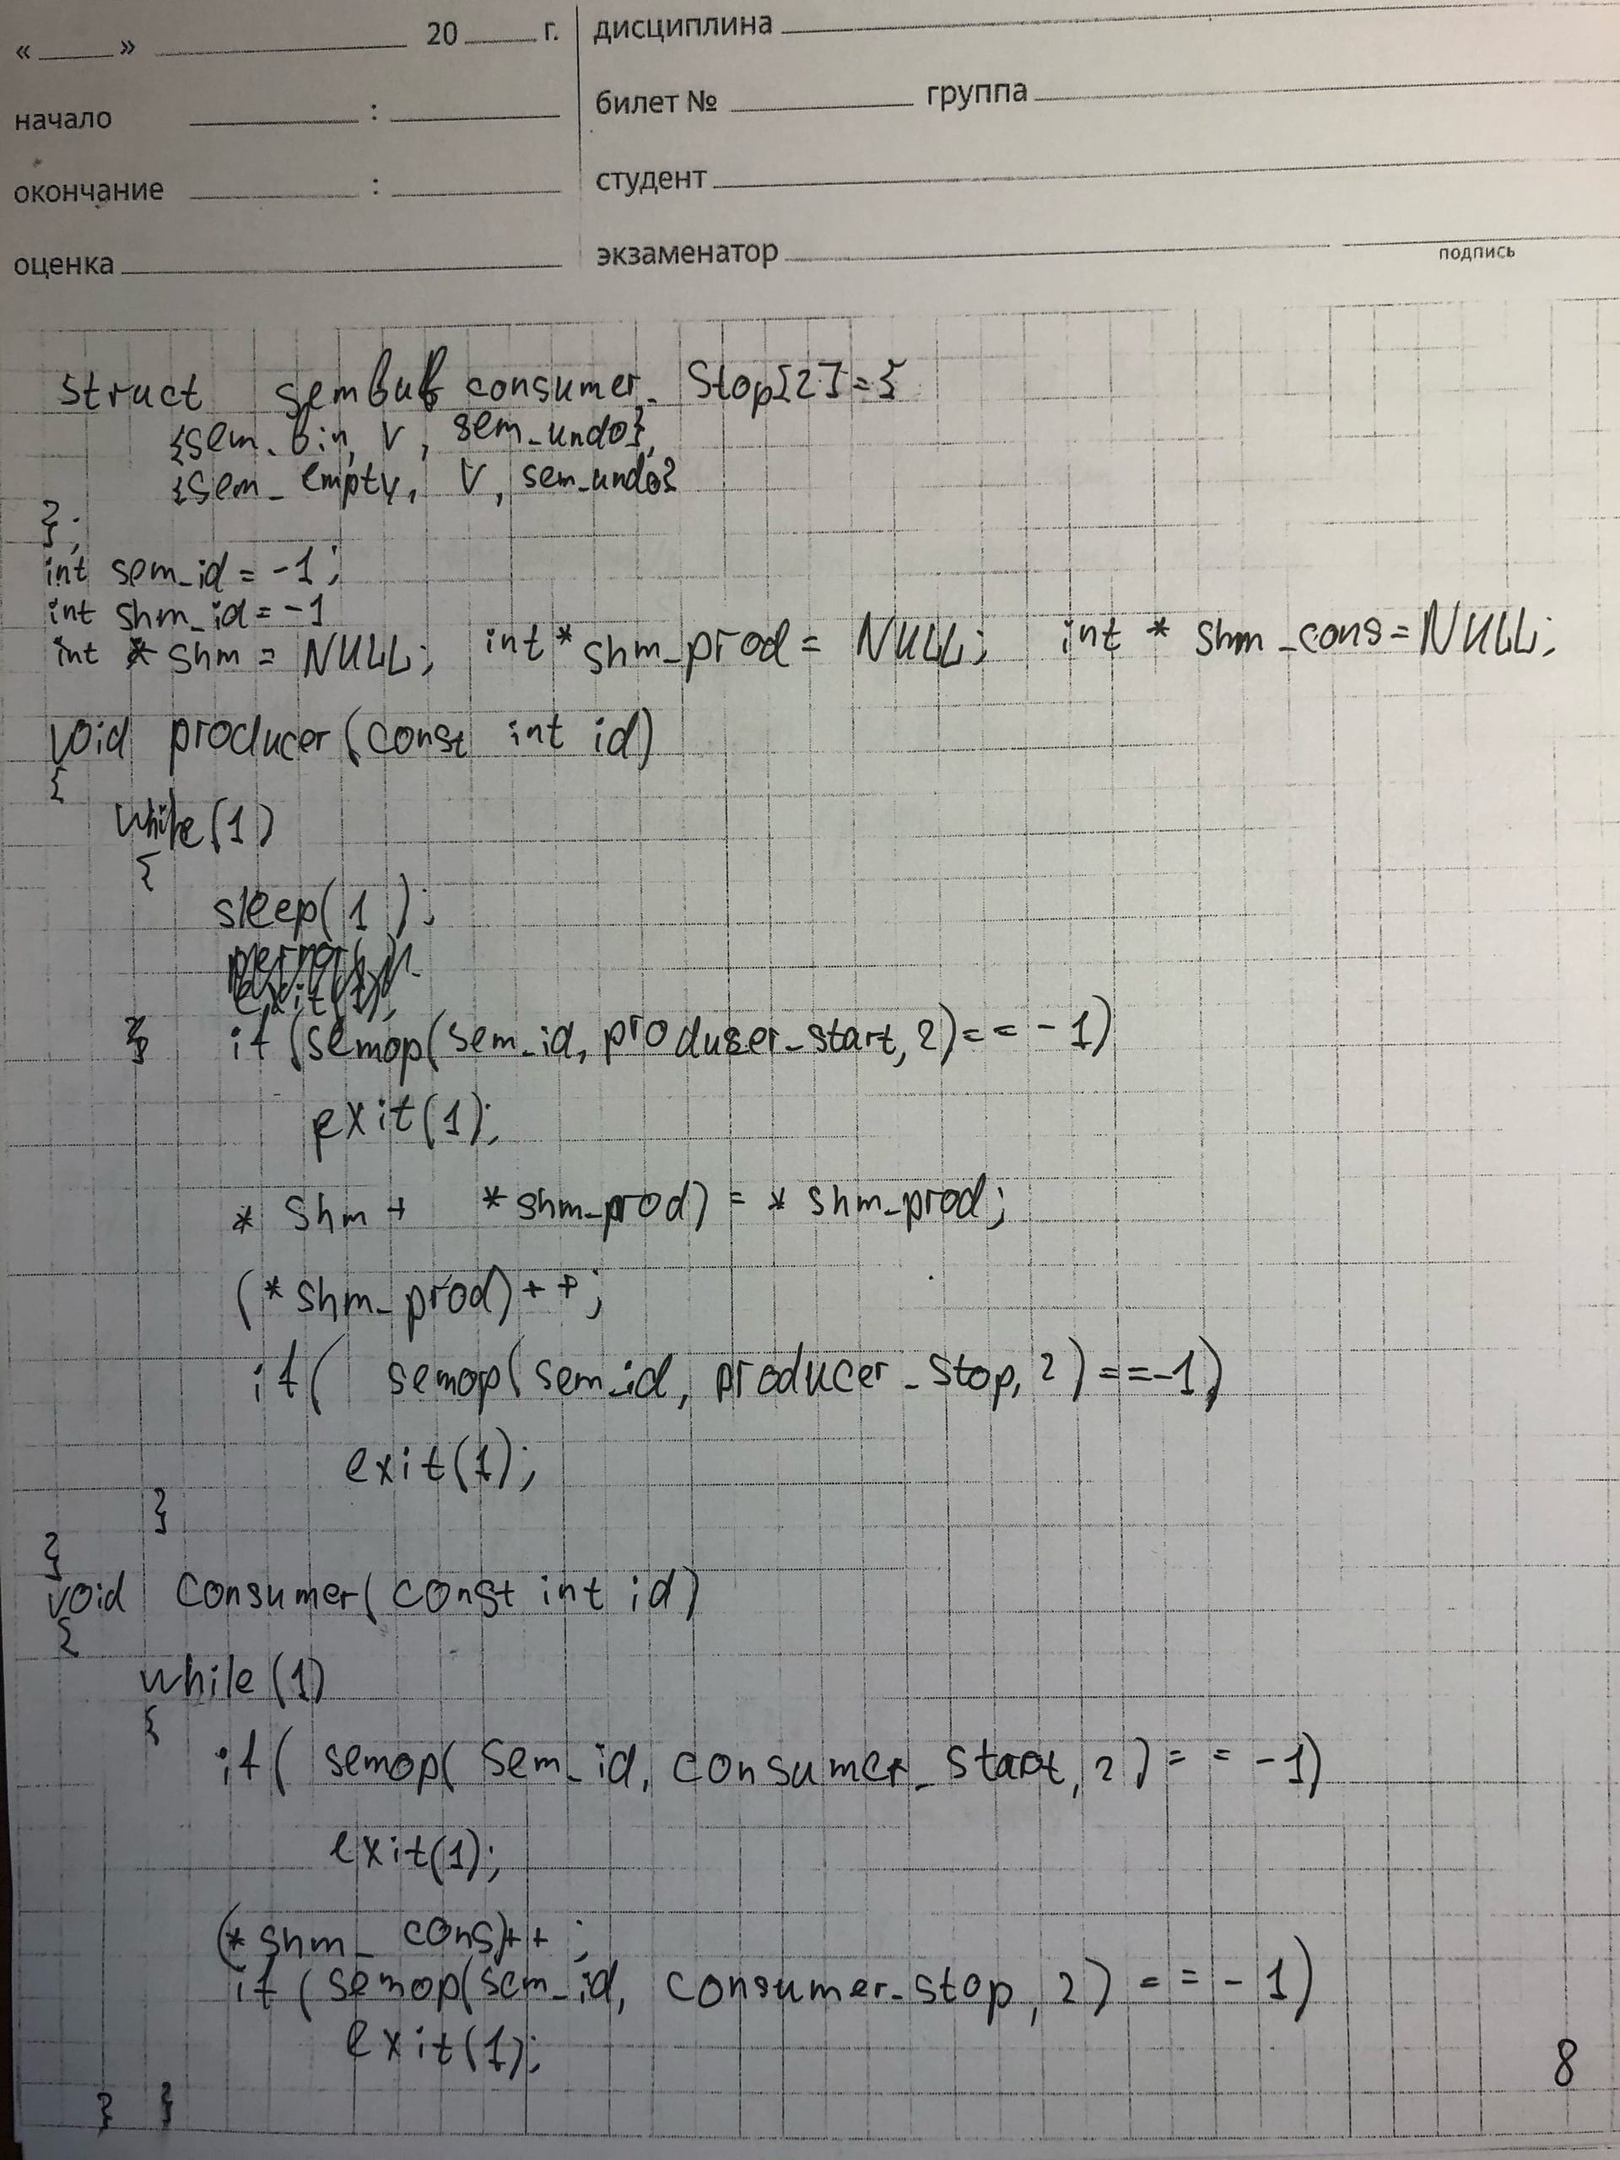 « » 20 г. дисциплина
начало : билет № группа
окончание : студент
оценка экзаменатор
подпись
struct sembuf consumer_Stop[2]={
{sem_bin, V, sem_undo},
{sem_empty, V, sem_undo}
};
int sem_id = -1;
int shm_id = -1
int * shm = NULL; int * shm_prod = NULL; int * shm_cons = NULL;
void producer (const int id)
{
while(1)
{
sleep(1);
} if (semop(sem_id, producer_start, 2) == -1)
exit(1);
* shm + *shm_prod) = * shm_prod;
(*shm_prod)++;
if( semop(sem_id, producer_stop, 2) == -1)
exit(1);
}
}
void consumer(const int id)
{
while(1)
{
if( semop( sem_id, consumer_start, 2) == -1)
exit(1);
(*shm_cons)++;
if (semop(sem_id, consumer_stop, 2) == -1)
exit(1);
} }
8